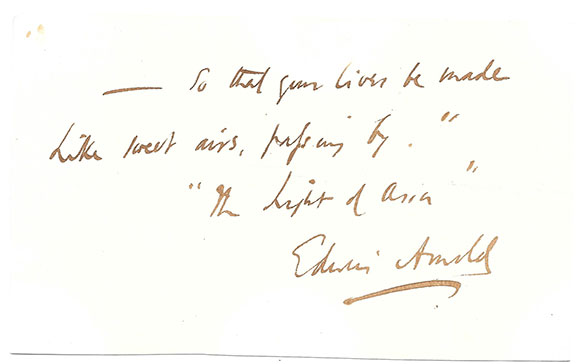 — So that your lives be made
Like sweet airs, passing by."
"The Light of Asia"
Edwin Arnold